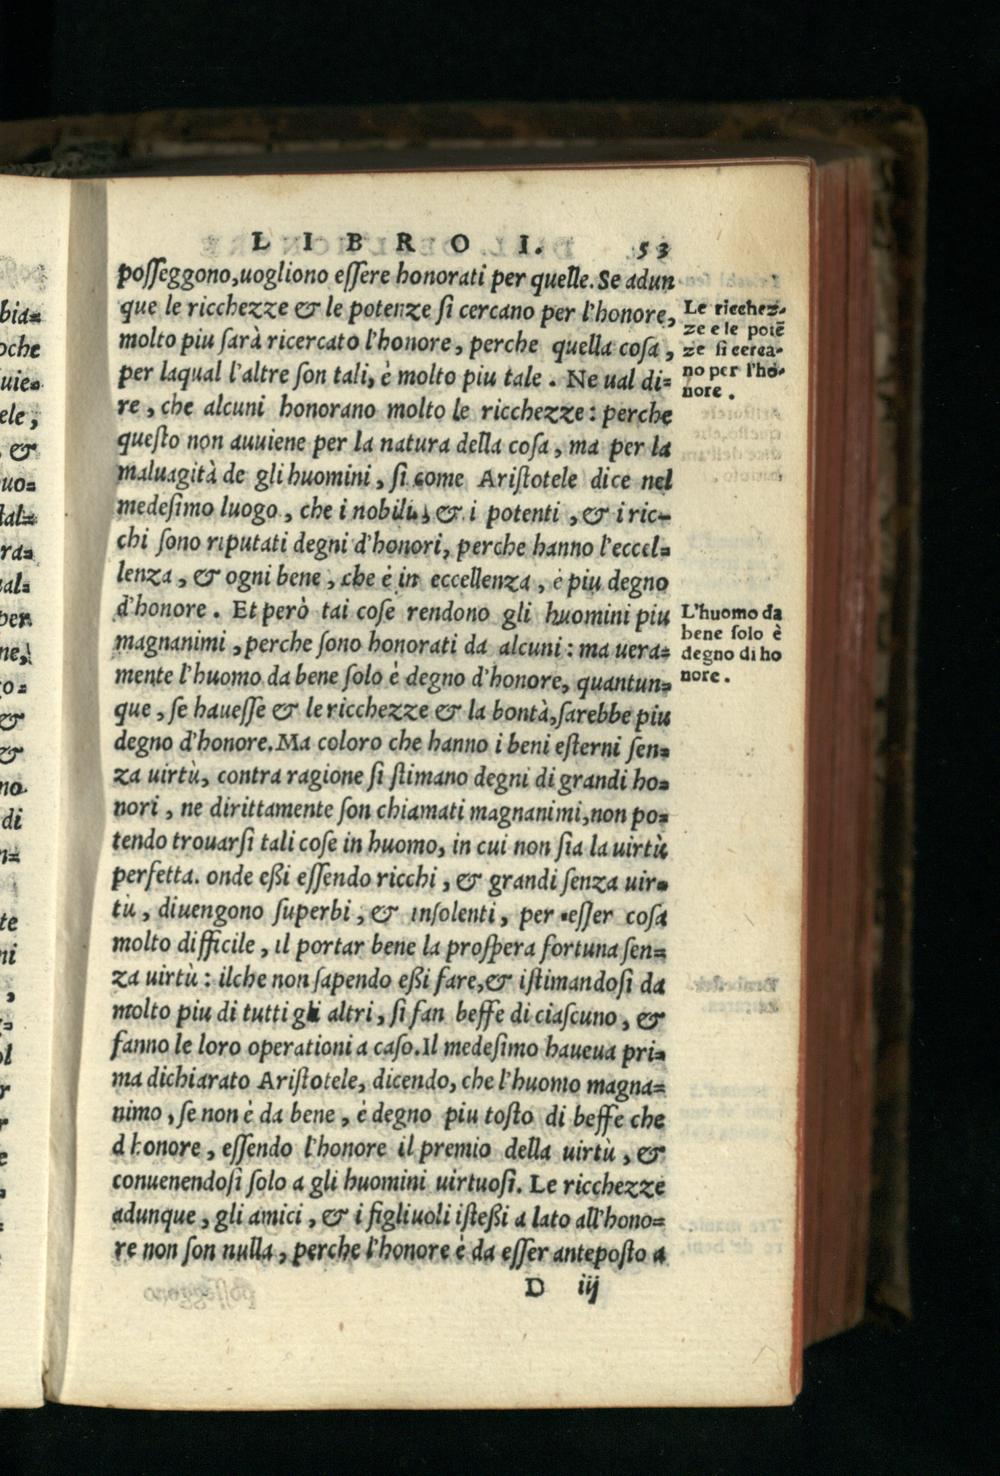 LIBRO I. 53
posseggono, uogliono essere honorati per quelle. Se adun
que le ricchezze & le potenze si cercano per l'honore,
molto piu sarà ricercato l'honore, perche quella cosa,
per laqual l'altre son tali, è molto piu tale. Ne ual di=
re, che alcuni honorano molto le ricchezze: perche
questo non auuiene per la natura della cosa, ma per la
maluagità de gli huomini, si come Aristotele dice nel
medesimo luogo, che i nobili, & i potenti, & i ric-
chi sono riputati degni d'honori, perche hanno l'eccel=
lenza, & ogni bene, che è in eccellenza, è piu degno
d'honore. Et però tai cose rendono gli huomini piu
magnanimi, perche sono honorati da alcuni: ma uera=
mente l'huomo da bene solo è degno d'honore, quantun=
que, se hauesse & le ricchezze & la bontà, sarebbe piu
degno d'honore. Ma coloro che hanno i beni esterni sen=
za uirtù, contra ragione si stimano degni di grandi ho=
nori, ne dirittamente son chiamati magnanimi, non po=
tendo trouarsi tali cose in huomo, in cui non sia la uirtù
perfetta. onde eßi essendo ricchi, & grandi senza uir=
tù, diuengono superbi, & insolenti, per esser cosa
molto difficile, il portar bene la prospera fortuna sen=
za uirtù: ilche non sapendo eßi fare, & istimandosi da
molto piu di tutti gli altri, si fan beffe di ciascuno, &
fanno le loro operationi a caso. Il medesimo haueua pri=
ma dichiarato Aristotele, dicendo, che l'huomo magna=
nimo, se non è da bene, è degno piu tosto di beffe che
d'honore, essendo l'honore il premio della uirtù, &
conuenendosi solo a gli huomini uirtuosi. Le ricchezze
adunque, gli amici, & i figliuoli isteßi a lato all'hono=
re non son nulla, perche l'honore è da esser anteposto a
D iij
Le ricchez-
ze e le potẽ
ze si cerca-
no per l'ho-
nore.
L'huomo da
bene solo è
degno di ho
nore.